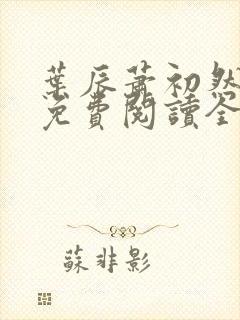 葉辰蕭初然
免費閱讀全
蘇非影